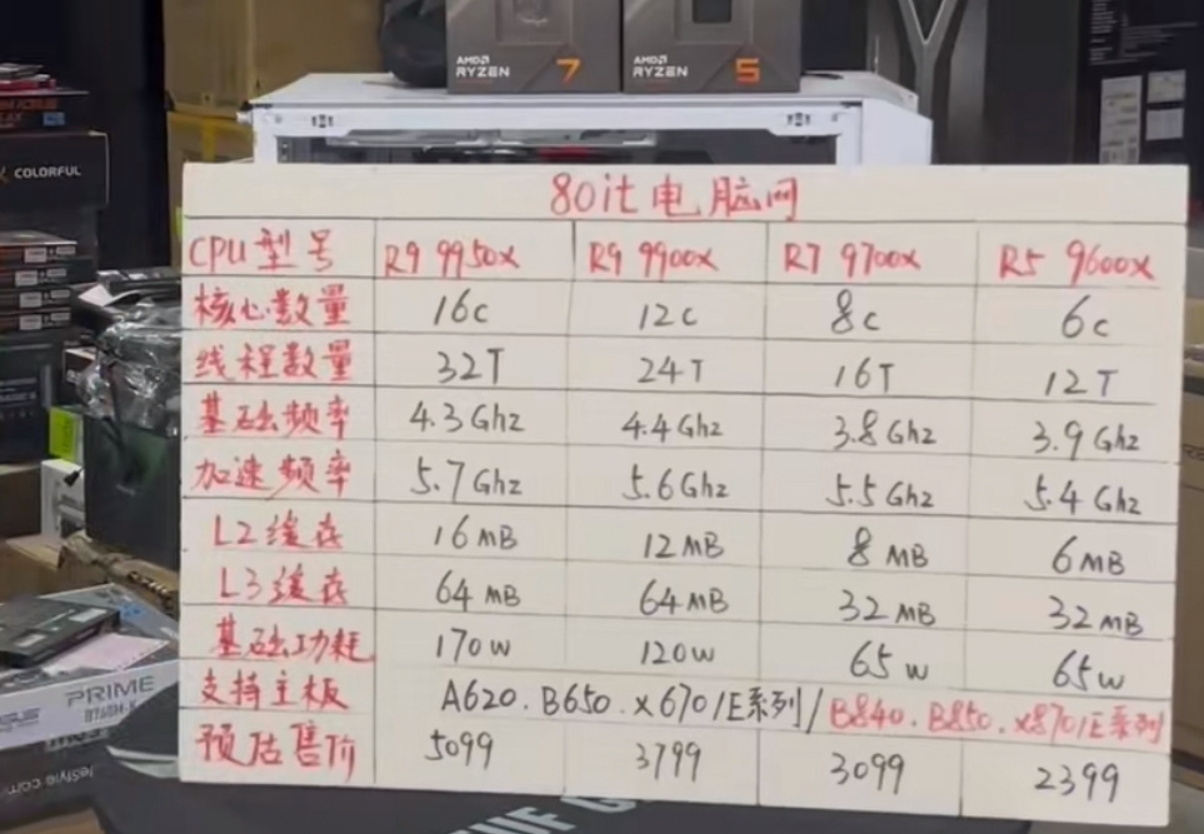 AMD
RYZEN 7
AMD
RYZEN 5
COLORFUL
80it电脑网
CPU型号 R9 9950x R9 9900x R7 9700x R5 9600x
核心数量 16c 12c 8c 6c
线程数量 32T 24T 16T 12T
基础频率 4.3Ghz 4.4Ghz 3.8Ghz 3.9Ghz
加速频率 5.7Ghz 5.6Ghz 5.5Ghz 5.4Ghz
L2缓存 16MB 12MB 8MB 6MB
L3缓存 64MB 64MB 32MB 32MB
基础功耗 170w 120w 65w 65w
支持主板 A620.B650.x670/E系列/B840.B850.x870/E系列
预估售价 5099 3799 3099 2399
PRIME